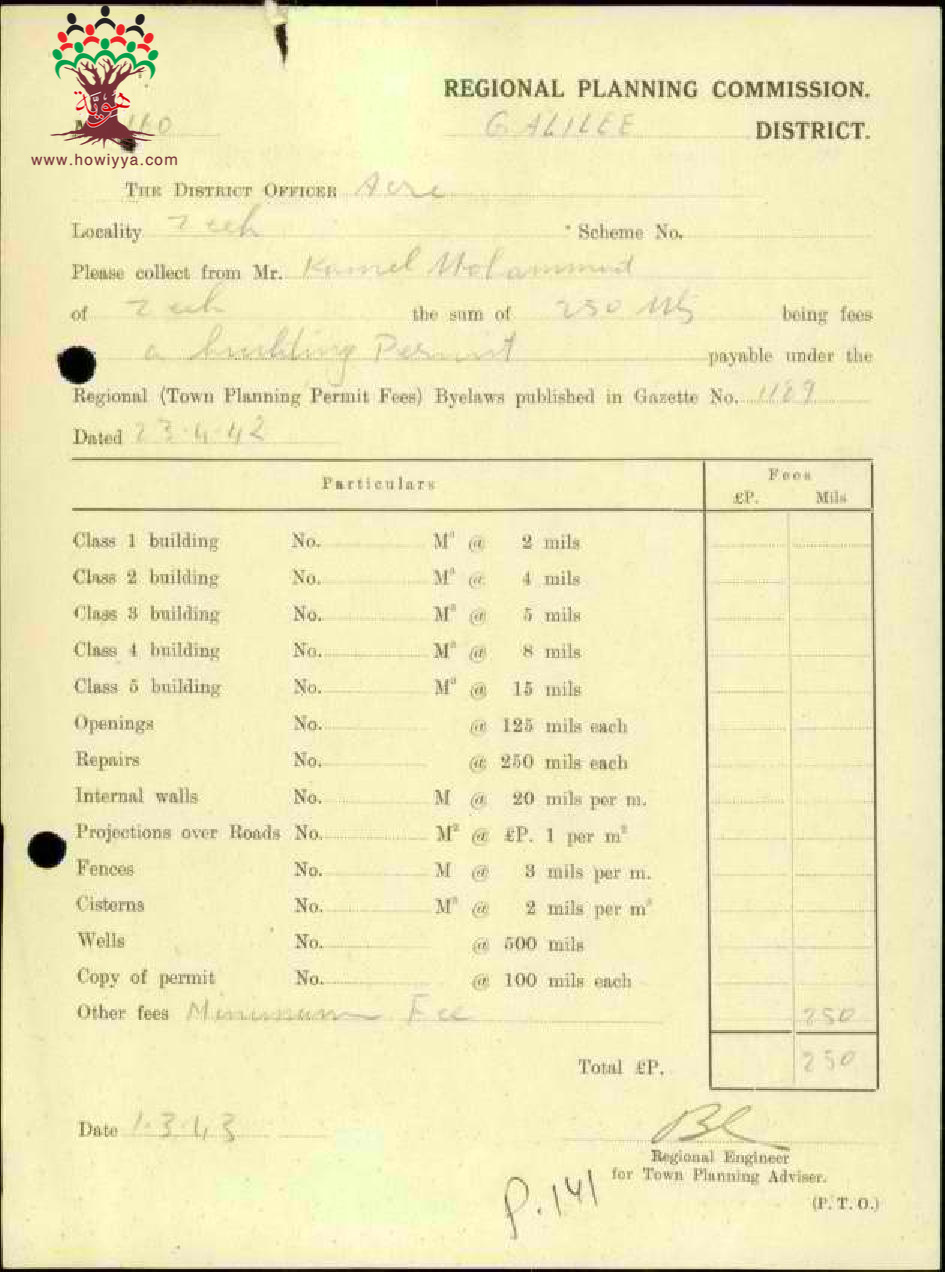 هوية
www.howiyya.com
REGIONAL PLANNING COMMISSION.
160 GALILEE DISTRICT.
THE DISTRICT OFFICER Acre
Locality Zeeb * Scheme No.
Please collect from Mr. Kamel Mohammed
of Zeeb the sum of 250 Mls being fees
a building Permit payable under the
Regional (Town Planning Permit Fees) Byelaws published in Gazette No. 1189
Dated 23.4.42
Particulars Fees
£P. Mils
Class 1 building No. M² @ 2 mils
Class 2 building No. M² @ 4 mils
Class 3 building No. M² @ 5 mils
Class 4 building No. M² @ 8 mils
Class 5 building No. M² @ 15 mils
Openings No. @ 125 mils each
Repairs No. @ 250 mils each
Internal walls No. M @ 20 mils per m.
Projections over Roads No. M² @ £P. 1 per m²
Fences No. M @ 3 mils per m.
Cisterns No. M³ @ 2 mils per m³
Wells No. @ 500 mils
Copy of permit No. @ 100 mils each
Other fees Minimum Fee 250
Total £P. 250
Date 1.3.43
Regional Engineer
for Town Planning Adviser.
P.141
(P. T. O.)